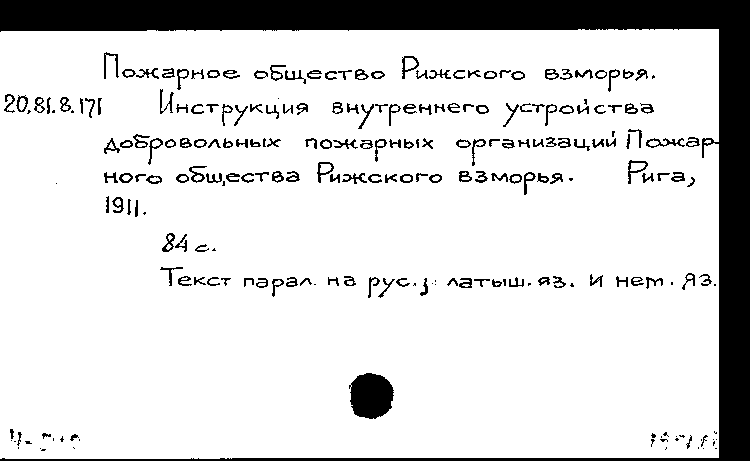 Пожарное общество Рижского взморья.
20.81.8.171 Инструкция внутреннего устройства
добровольных пожарных организаций Пожар-
ного общества Рижского взморья. Рига,
1911.
84 с.
Текст парал. на рус., латыш. яз. и нем. яз.